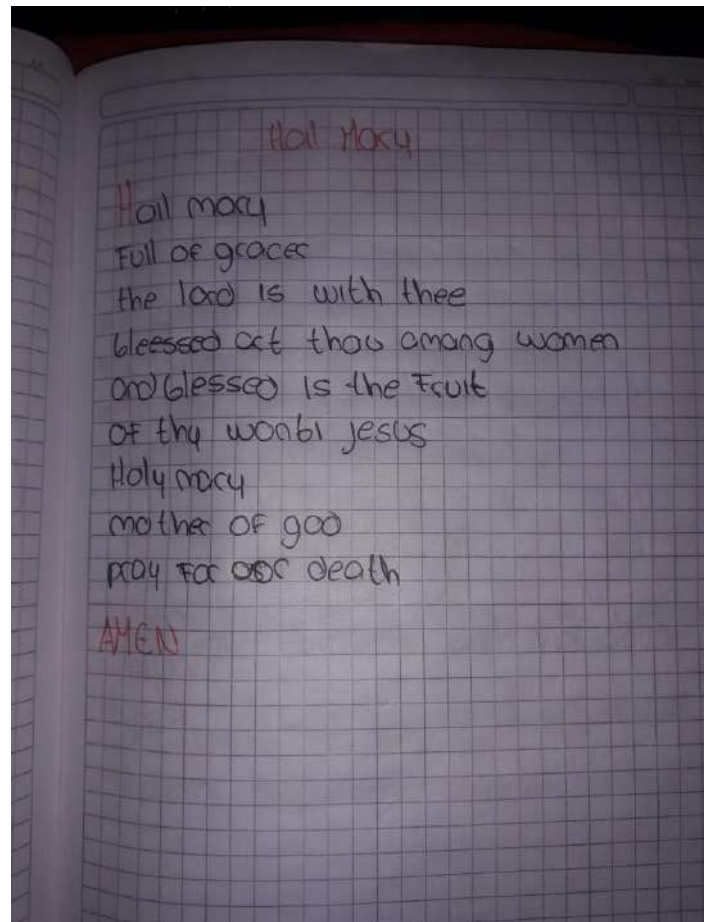 Hail Mary
Hail mary
Full of gracer
the lord is with thee
bleessed art thou amang women
and blessed is the Fruit
of thy wonbi jesus
Holy mary
mother of god
pray for our death
AMEN